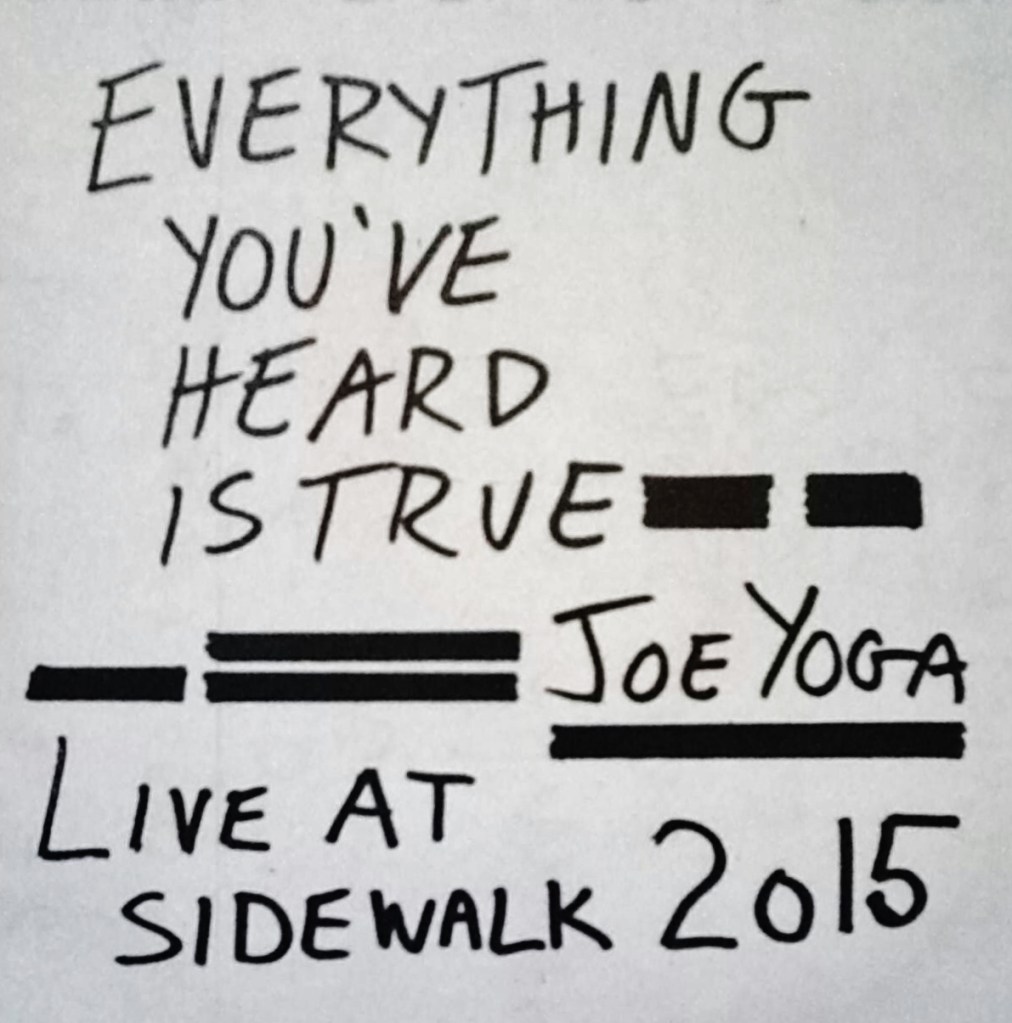 EVERYTHING
YOU'VE
HEARD
IS TRUE
JOE YOGA
LIVE AT
SIDEWALK 2015